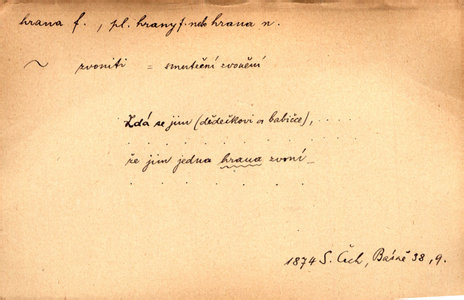 hrana f., pl. hrany f. nebo hrana n.
~ zvoniti = smuteční zvonění
Zdá se jim (dědečkovi a babičce),
. . . . . . . . . .
že jim jedna hrana zvoní_
. . . . . .
1874 S. Čech, Básně 38, 9.